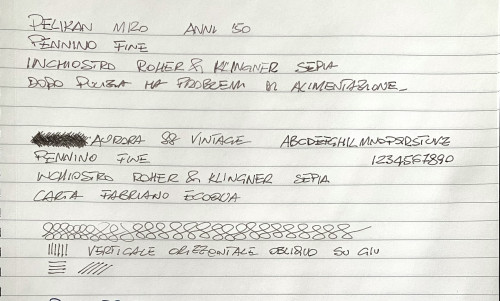 PELIKAN MIRO ANNI '50
PENNINO FINE
INCHIOSTRO ROHER & KLINGNER SEPIA
DOPO PULIZIA HA PROBLEMI DI ALIMENTAZIONE
AURORA 88 VINTAGE ABCDEFGHILMNOPQRSTUVZ
PENNINO FINE 1234567890
INCHIOSTRO ROHER & KLINGNER SEPIA
CARTA FABRIANO ECOQUA
VERTICALE ORIZZONTALE OBLIQUO SU GIU